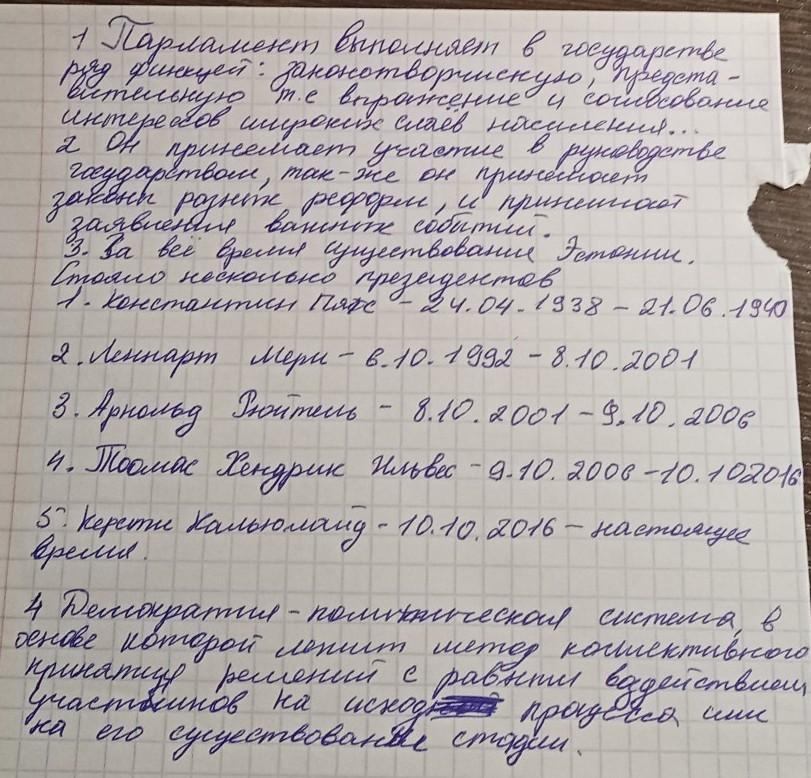 1 Парламент выполняет в государстве
ряд функцей: законотворчискую, предста-
вительную т.с выражение и согласование
интересов широких слаёв насиления...
2 Он принемает участие в руководстве
государством, так-же он принемает
законы разных реформ, и принимает
заявления важных событий.
3. За всё время существования Эстонии.
Стояло несколько презедентов
1. Константин Пятс - 24.04.1938 - 21.06.1940
2. Леннарт Мери - 6.10.1992 - 8.10.2001
3. Арнольд Рюйтель - 8.10.2001 - 9.10.2006
4. Тоомас Хендрик Ильвес - 9.10.2006 - 10.102016
5. Керсти Кальюлайд - 10.10.2016 - настоящее
время.
4 Демократия - политическая система, в
основе которой лежит метод коллективного
принятия решений с равными
участников на исход процесса или
на его стадии.